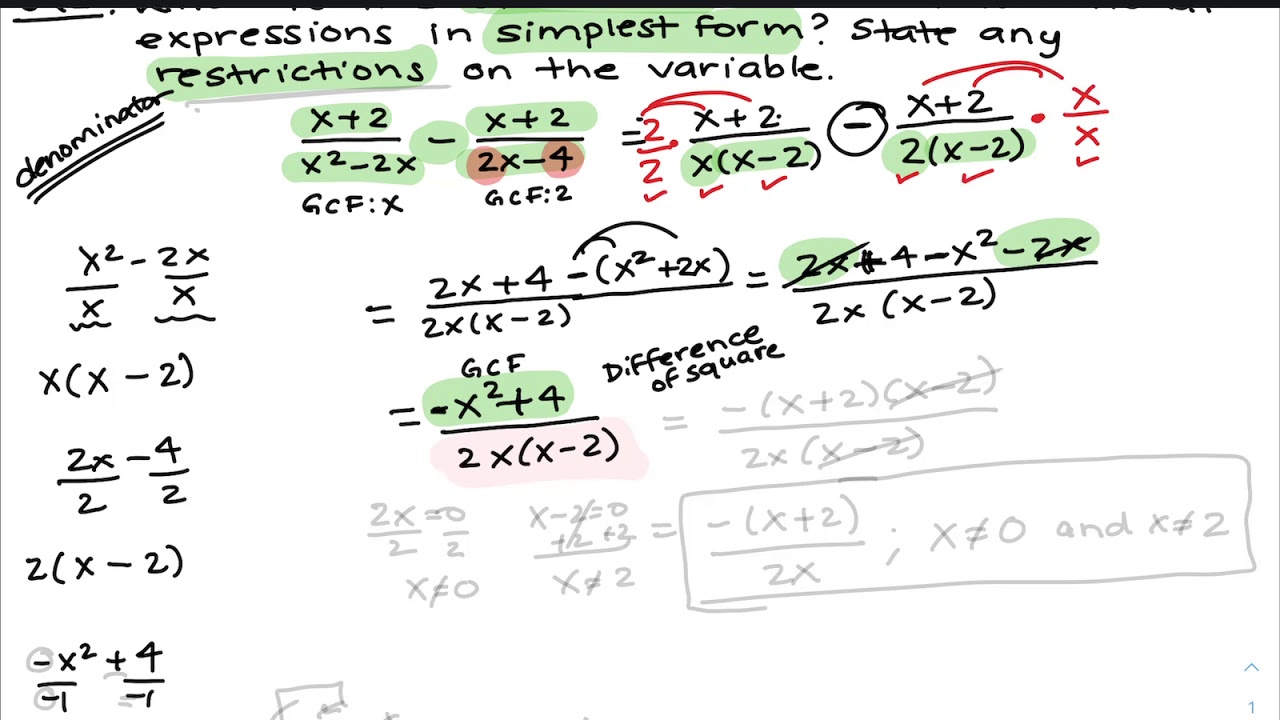 expressions in simplest form? State any
restrictions on the variable.
denominator
x+2/x²-2x - x+2/2x-4 = 2/2 · x+2/x(x-2) - x+2/2(x-2) · x/x
GCF:x GCF:2
x²/x - 2x/x
= 2x+4-(x²+2x)/2x(x-2) = 2x+4-x²-2x/2x(x-2)
x(x-2)
GCF
Difference
of square
= -x²+4/2x(x-2) = -(x+2)(x-2)/2x(x-2)
2x/2 - 4/2
2x=0/2 2 x-2=0
+2 +2
= -(x+2)/2x ; x≠0 and x≠2
x≠0 x≠2
2(x-2)
-x²/-1 + 4/-1
1